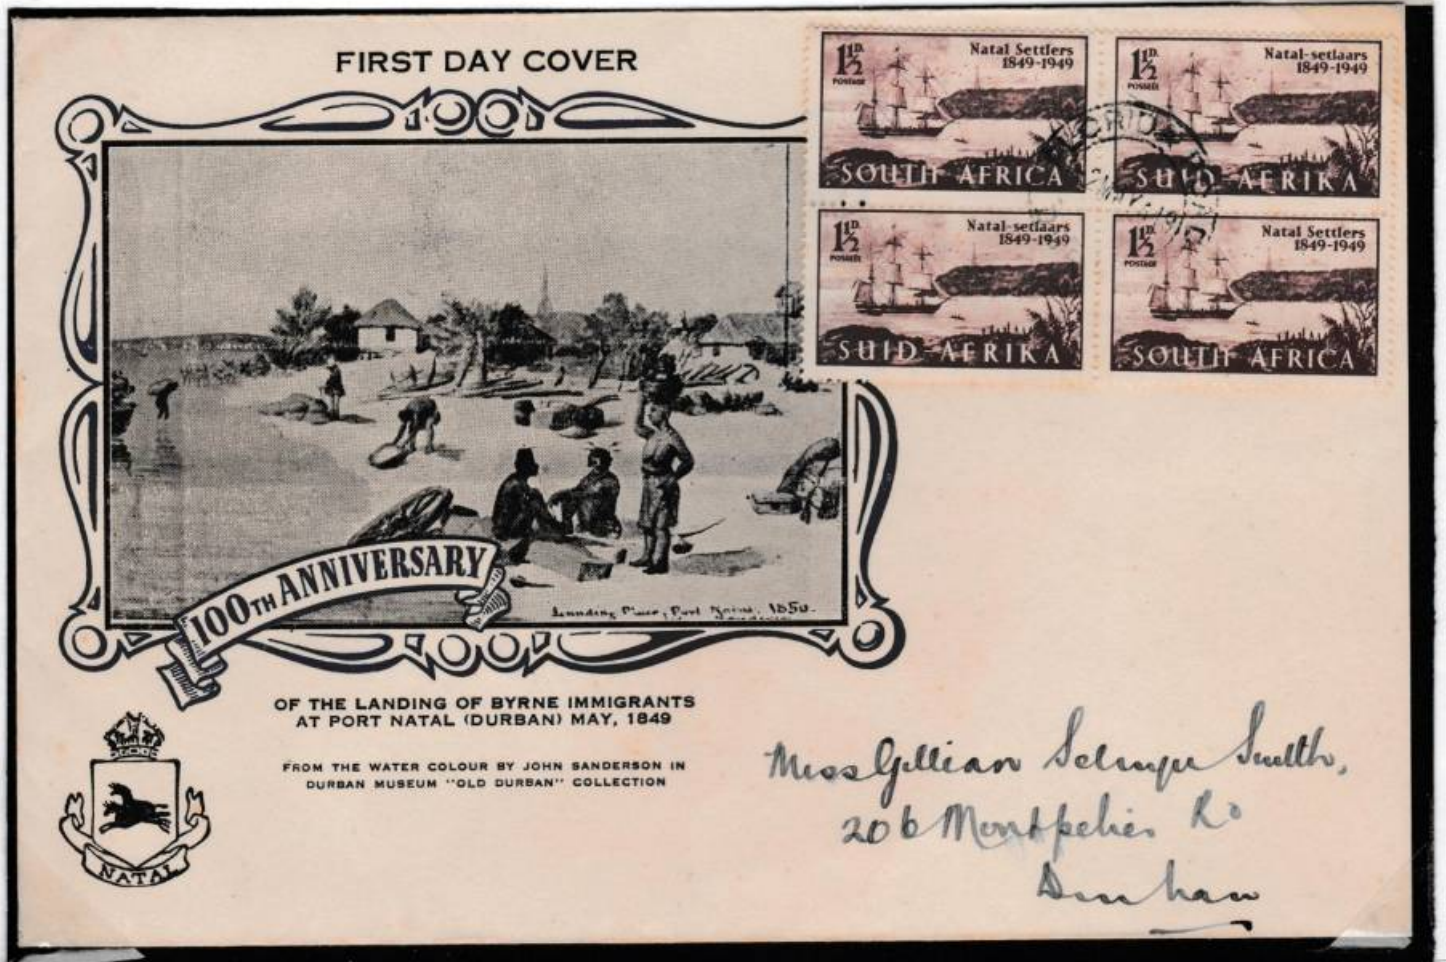 FIRST DAY COVER
1½D.
POSTAGE
Natal Settlers
1849-1949
SOUTH AFRICA
1½D.
POSSEËL
Natal-setlaars
1849-1949
SUID-AFRIKA
1½D.
POSSEËL
Natal-setlaars
1849-1949
SUID-AFRIKA
1½D.
POSTAGE
Natal Settlers
1849-1949
SOUTH AFRICA
FLORIDA ROAD
MAY
Landing Place, Port Natal. 1850.
100TH ANNIVERSARY
OF THE LANDING OF BYRNE IMMIGRANTS
AT PORT NATAL (DURBAN) MAY, 1849
FROM THE WATER COLOUR BY JOHN SANDERSON IN
DURBAN MUSEUM "OLD DURBAN" COLLECTION
NATAL
Miss Gillian Smith,
206 Montpelier Rd
Durban